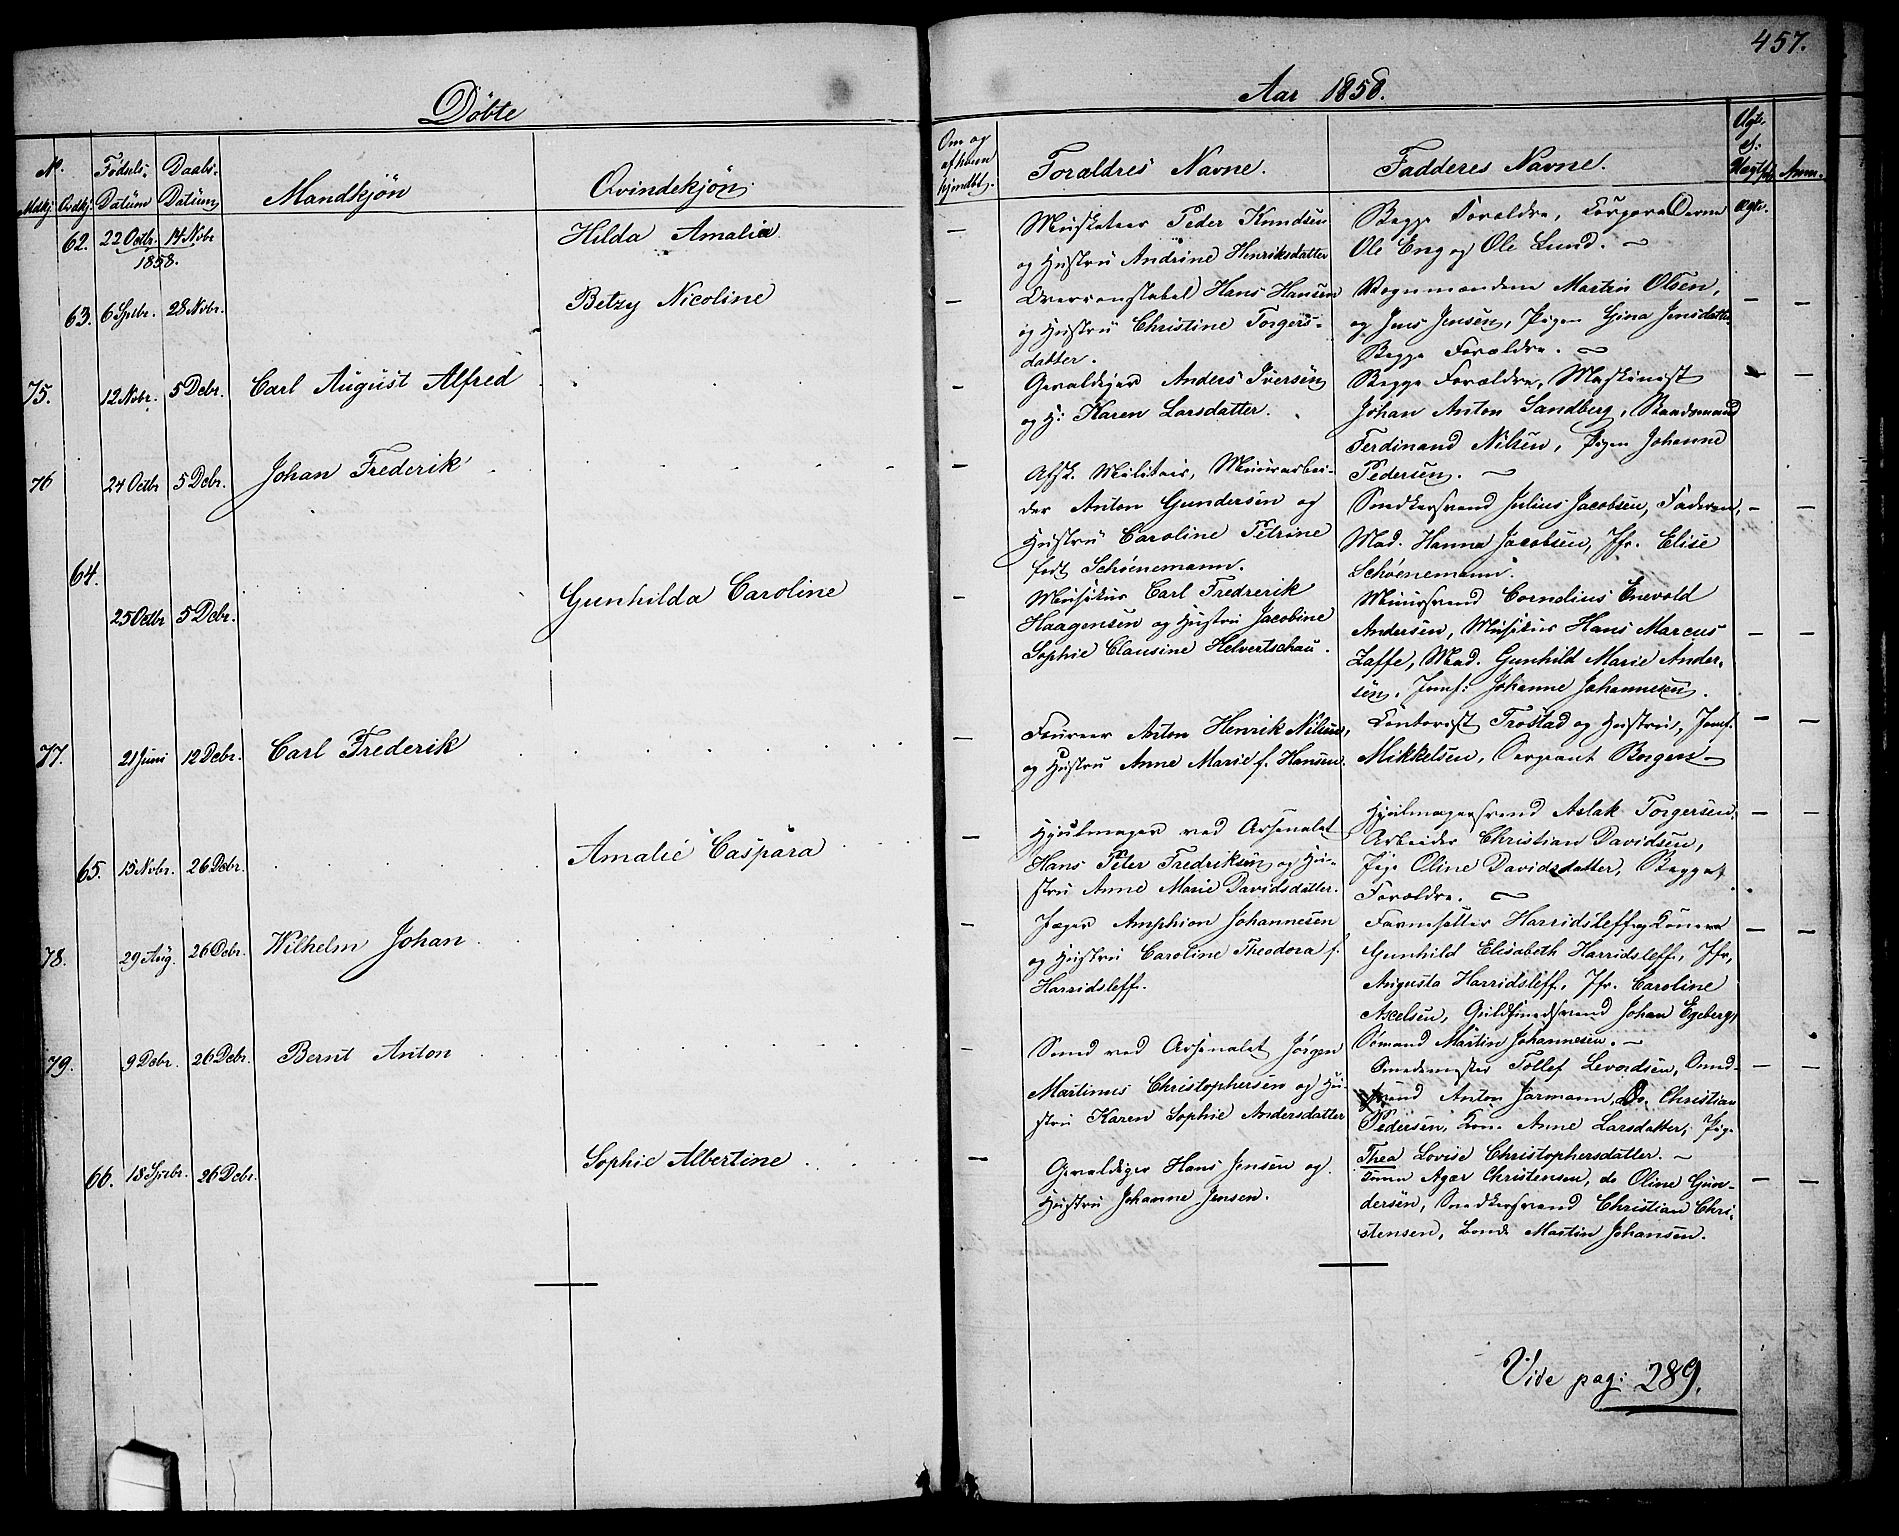 457.
Döbte
Aar 1858.
N.
Mdkj. Qvdkj.
Fødsels-
Datum
Daabs-
Datum
Mandkjön
Qvindekjön.
Om og
af hvem
hjmdbt.
Forældres Navne.
Fadderes Navne.
Ægte.
el.
Uægte
Anm.
62. 22 Octbr. 14 Novbr
1858.
Hilda Amalia.
Musketeer Peder Knudsen
og Hustru Andrine Henriksdatter
Begge Forældre, Corporal
Ole Eng og Ole Lund.
Ægte.
63. 6 Spbr. 28 Novbr.
Betzy Nicoline
Overconstabel Hans Hansen
og Hustru Christine Torgers-
datter.
Vognmændene Martin Olsen,
og Jens Jensen, Pigen Gina Jensdatter
Begge Forældre.
75. 12 Novbr. 5 Decbr.
Carl August Alfred
Gevaldiger Anders Iversen
og H: Karen Larsdatter.
Begge Forældre, Maskinist
Johan Anton Sandberg, Baadsmand
Ferdinand Nilsen, Pigen Johanne
Pedersen.
76 24 Octbr 5 Decbr.
Johan Frederik
Afsk. Militair, Murarbei-
der Anton Gundersen og
Hustru Caroline Petrine
født Schöenemann.
Snedkersvend Julius Jacobsen, Faderen,
Mad. Hanna Jacobsen, Jfr. Elise
Schöenemann.
64. 25 Octbr 5 Decbr.
Gunhilda Caroline
Musikus Carl Fredrerik
Haagensen og Hustru Jacobine
Sophie Clausine Helvertschau.
Muursvend Cornelius Enevold
Andersen, Musikus Hans Marcus
Zaffe, Mad. Gunhild Marie Ander-
sen, Jomf: Johanne Johannesen.
77. 21 Juni 12 Decbr.
Carl Frederik
Foureer Anton Henrik Nilsen,
og Hustru Anne Marie f. Hansen.
Contorist Trostad og Hustru, Jomf.
Mikkelsen, Sergeant Borgen
65. 15 Novbr. 26 Decbr.
Amalie Caspara
Hjulmager ved Arsenalet
Hans Peter Fredriksen og Hu-
stru Anne Marie Davidsdatter.
Hjulmagersvend Aslak Torgersen,
Arbeider Christian Davidsen,
Pige Oline Davidsdatter, Begge
Forældre.
78. 29 Aug. 26 Decbr.
Wilhelm Johan
Jæger Amphion Johannesen
og Hustru Caroline Theodora f.
Harridsleff.
Harridsleff og Konen
Gunhild Elisabeth Harridsleff, Jfr,
Augusta Harridsleff, Jfr. Caroline
Axelsen, Guldsmedsvend Johan Egeberg,
Sømand Martin Johannesen.
79. 9 Decbr. 26 Decbr.
Bernt Anton
Smed ved Arsenalet Jörgen
Martinus Christophersen og Hu-
stru Karen Sophie Andersdatter
Smedemester Tollef Levordsen, Smed-
svend Anton Jarmann, Do. Christian
Pedersen, Kone Anne Larsdatter, Pige
Thea Lovise Christophersdatter.
66. 18 Spbr. 26 Decbr.
Sophie Albertine
Gevaldiger Hans Jensen og
Hustru Johanne Jensen.
Agar Christensen, do Oline Gun-
dersen, Snedkersvend Christian Chri-
stensen, Martin Johansen.
Vide pag: 289.